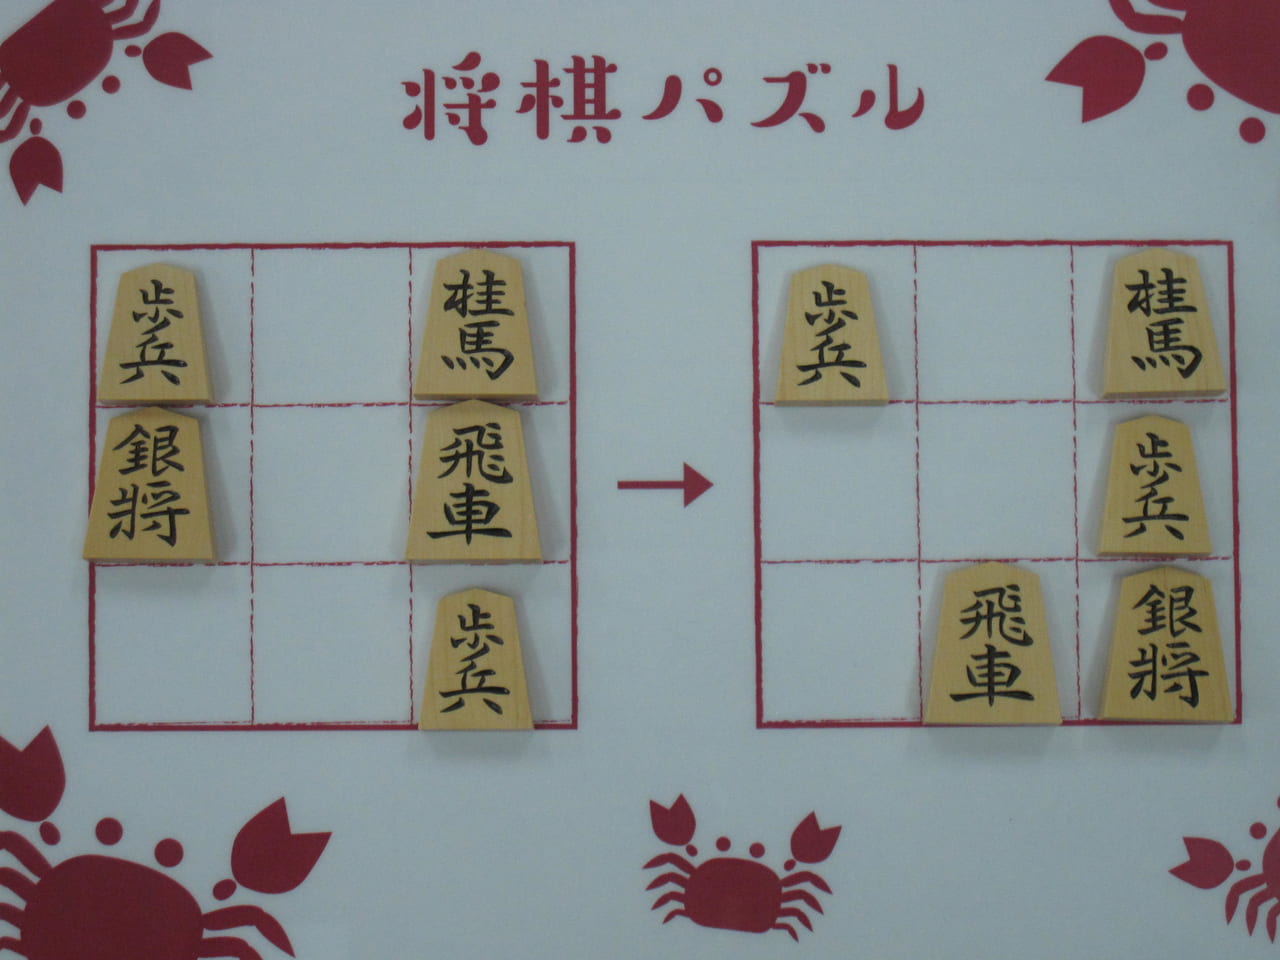 将棋パズル
歩兵
桂馬
銀将
飛車
歩兵
歩兵
桂馬
歩兵
飛車
銀将